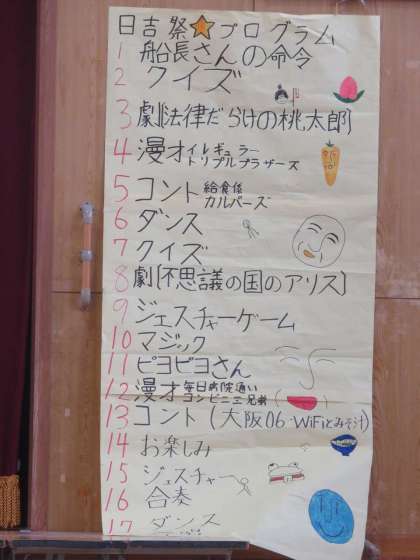 日吉祭★プログラム
1 船長さんの命令
2 クイズ
3 劇[法律だらけの桃太郎]
4 漫才 イレギュラー
トリプルブラザーズ
5 コント 給食係
カルパーズ
6 ダンス
7 クイズ
8 劇[不思議の国のアリス]
9 ジェスチャーゲーム
10 マジック
11 ピヨピヨさん
12 漫才 毎日病院通い
コンビニ三兄弟
13 コント (大阪06・WiFiとみそ汁)
14 お楽しみ
15 ジェスチャー
16 合奏
17 ダンス